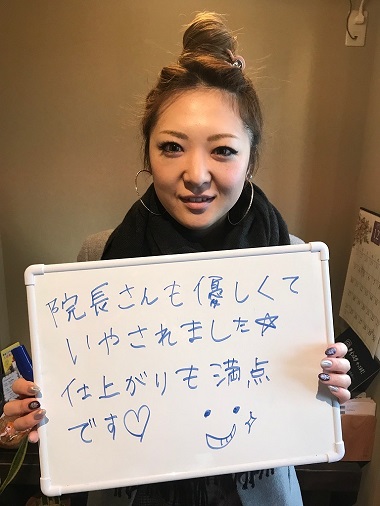 院長さんも優しくて
いやされました☆
仕上がりも満点
です♡